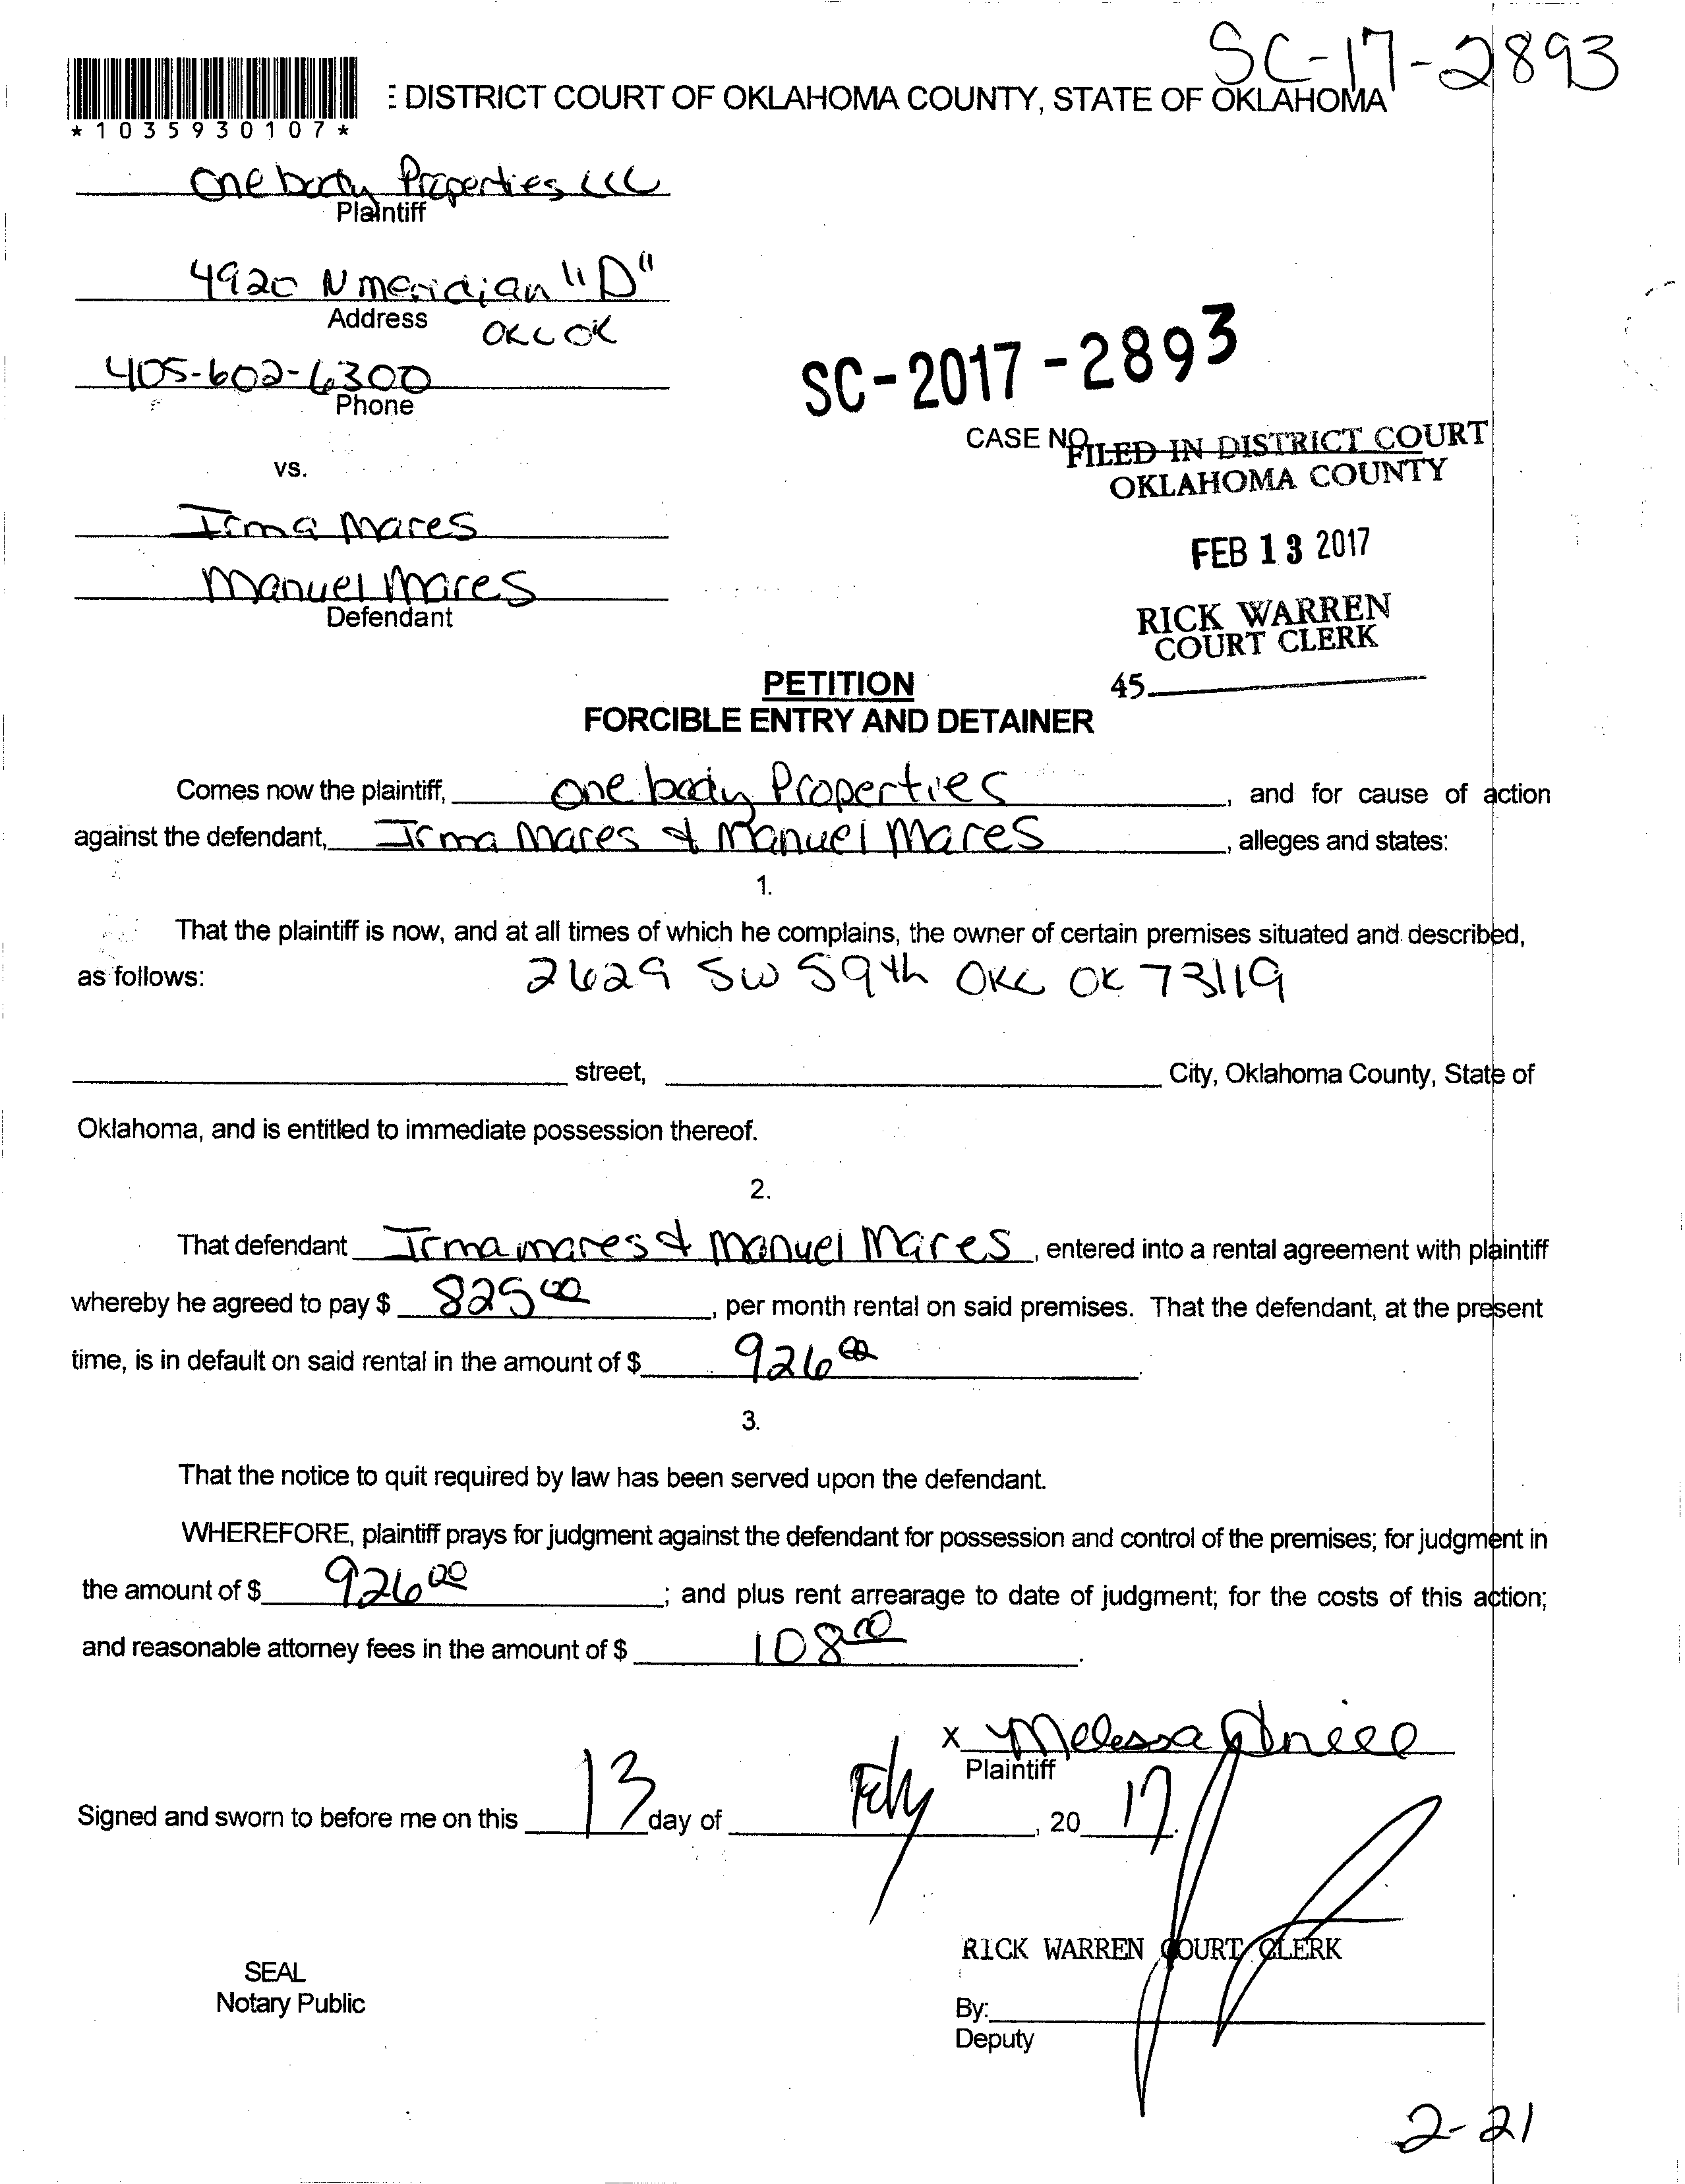 SC-17-2893
E DISTRICT COURT OF OKLAHOMA COUNTY, STATE OF OKLAHOMA
*1035930107*
One body Properties LLC
Plaintiff
4920 N meridian "D"
Address OKC OK
405-602-6300
Phone
SC-2017-2893
CASE NO.
FILED IN DISTRICT COURT
OKLAHOMA COUNTY
vs.
Irma Mares
FEB 13 2017
Manuel Mares
Defendant
RICK WARREN
COURT CLERK
45
PETITION
FORCIBLE ENTRY AND DETAINER
Comes now the plaintiff, One body Properties, and for cause of action
against the defendant, Irma Mares & Manuel Mares, alleges and states:
1.
That the plaintiff is now, and at all times of which he complains, the owner of certain premises situated and described,
as follows: 2629 SW 59th OKC OK 73119
street, City, Oklahoma County, State of
Oklahoma, and is entitled to immediate possession thereof.
2.
That defendant Irma mares & Manuel Mares, entered into a rental agreement with plaintiff
whereby he agreed to pay $ 825 00, per month rental on said premises. That the defendant, at the present
time, is in default on said rental in the amount of $ 926 00.
3.
That the notice to quit required by law has been served upon the defendant.
WHEREFORE, plaintiff prays for judgment against the defendant for possession and control of the premises; for judgment in
the amount of $ 926 00; and plus rent arrearage to date of judgment; for the costs of this action;
and reasonable attorney fees in the amount of $ 108 00.
x Melessa
Plaintiff
Signed and sworn to before me on this 13 day of Feb, 20 17.
RICK WARREN COURT CLERK
SEAL
Notary Public
By:
Deputy
2-21